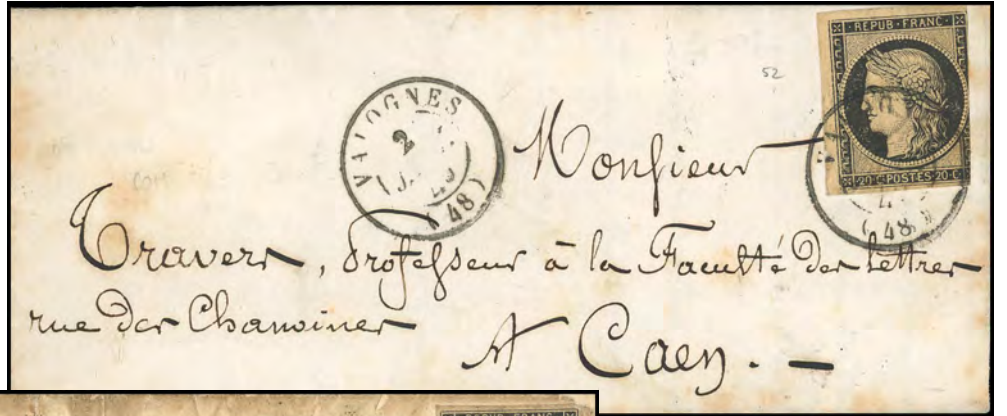 REPUB·FRANC·
52
VALOGNES
2
(48)
20·C·POSTES·20·C
(48)
Monsieur
Travers, professeur à la Faculté des Lettres
rue des Chanoines
A Caen. —